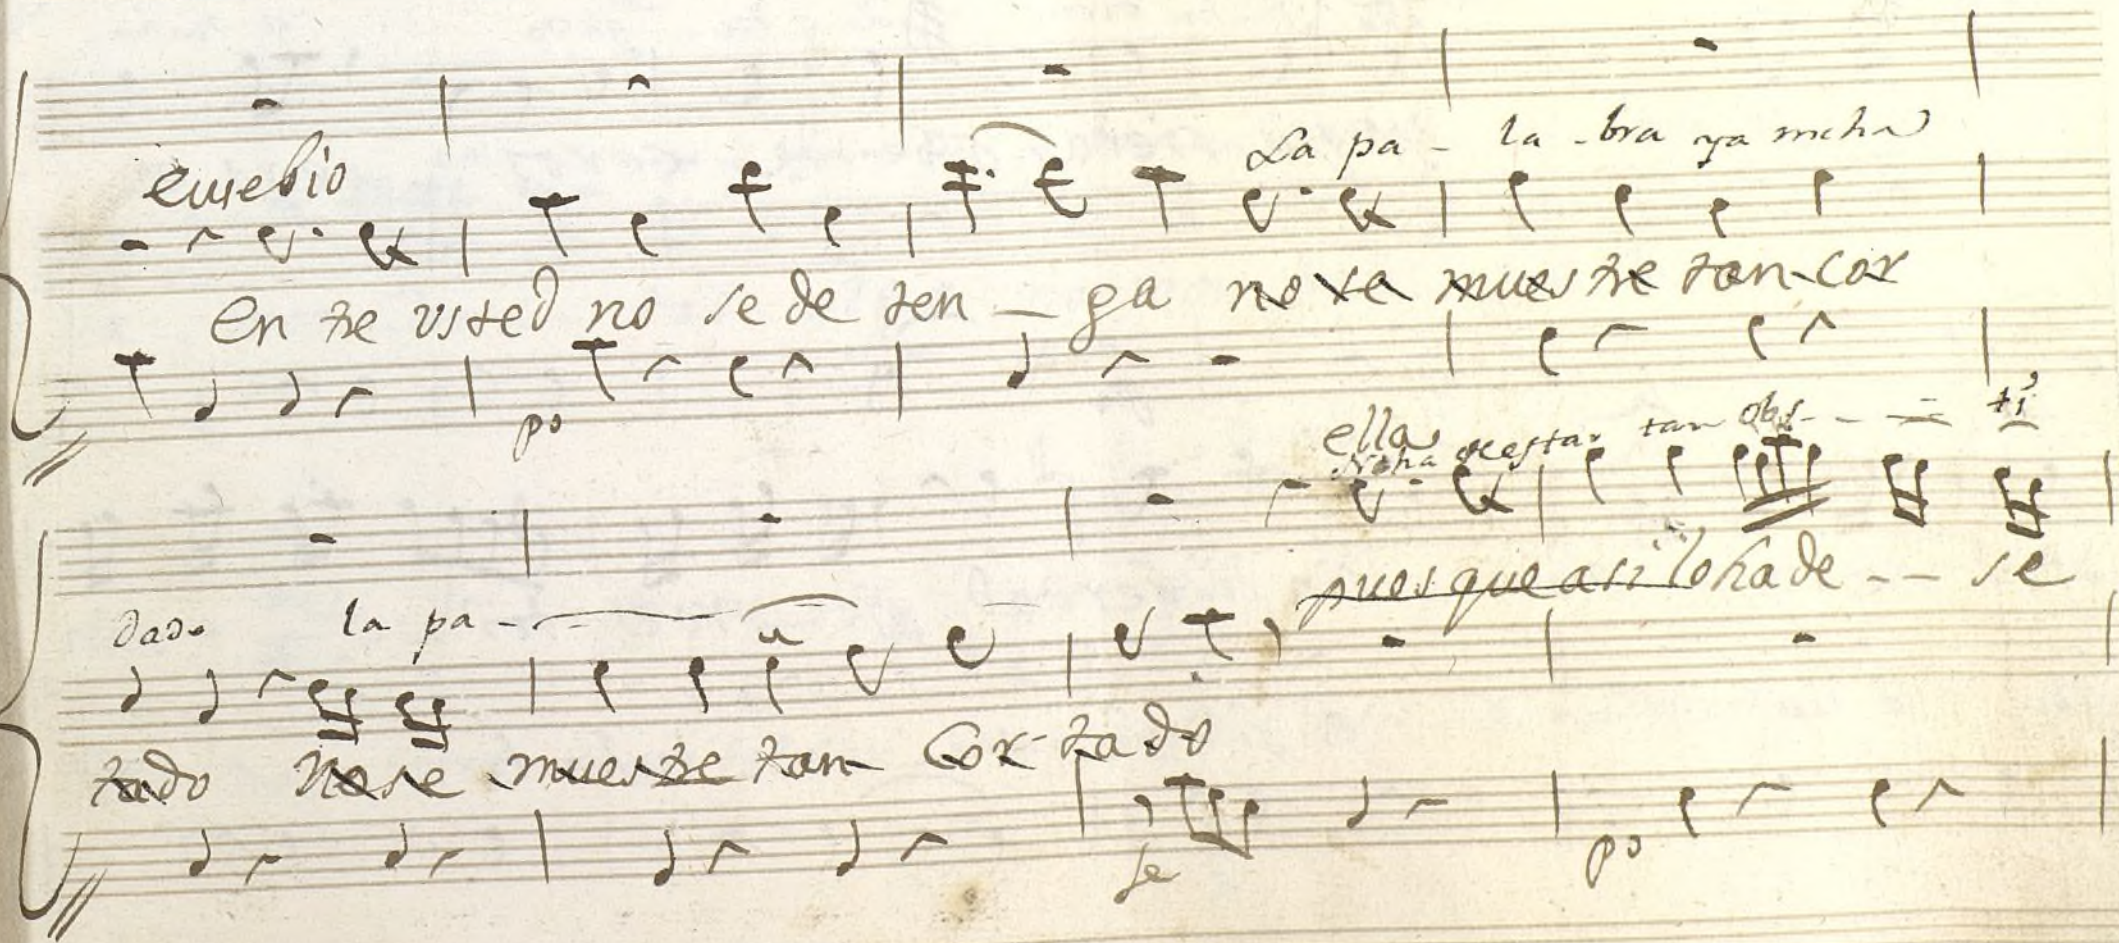 La pa - la - bra ya me ha
eusebio
en tre usted no se de ten - ga no se muestre tan cor
po
ella
No ha de estar tan obs - - - ti
pues que asi lo ha de - - se
dado la pa -
tado no se muestre tan Cor - tado
fe
po